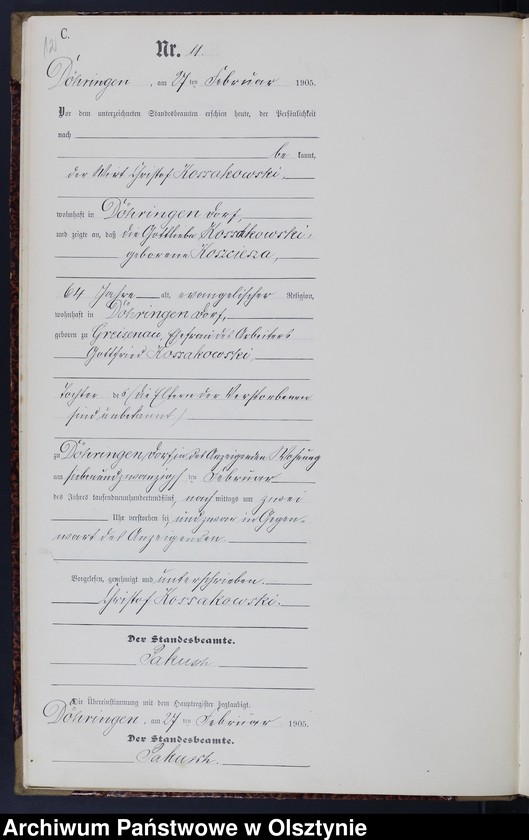 C.
Nr. 11.
Döhringen, am 27 ten Februar 1905.
Vor dem unterzeichneten Standesbeamten erschien heute, der Persönlichkeit
nach
be kannt,
der Wirt Christof Kossakowski,
wohnhaft in Döhringen Dorf,
und zeigte an, daß die Gottliebe Kossakowski,
geborene
64 Jahre alt, evangelischer Religion,
wohnhaft in Döhringen Dorf,
geboren zu Greisenau, Ehefrau des Arbeiters
Gottfried Kossakowski,
Tochter des (die Eltern der Verstorbenen
sind unbekannt)
zu Döhringen, Dorf in des Anzeigenden Wohnung
am siebenundzwanzigsten ten Februar
des Jahres tausendneunhundertundfünf, nach mittags um zwei
Uhr verstorben sei, und zwar in Gegen-
wart des Anzeigenden.
Vorgelesen, genehmigt und unterschrieben.
Christof Kossakowski.
Der Standesbeamte.
Die Übereinstimmung mit dem Hauptregister beglaubigt.
Döhringen, am 27 ten Februar 1905.
Der Standesbeamte.
Archiwum Państwowe w Olsztynie